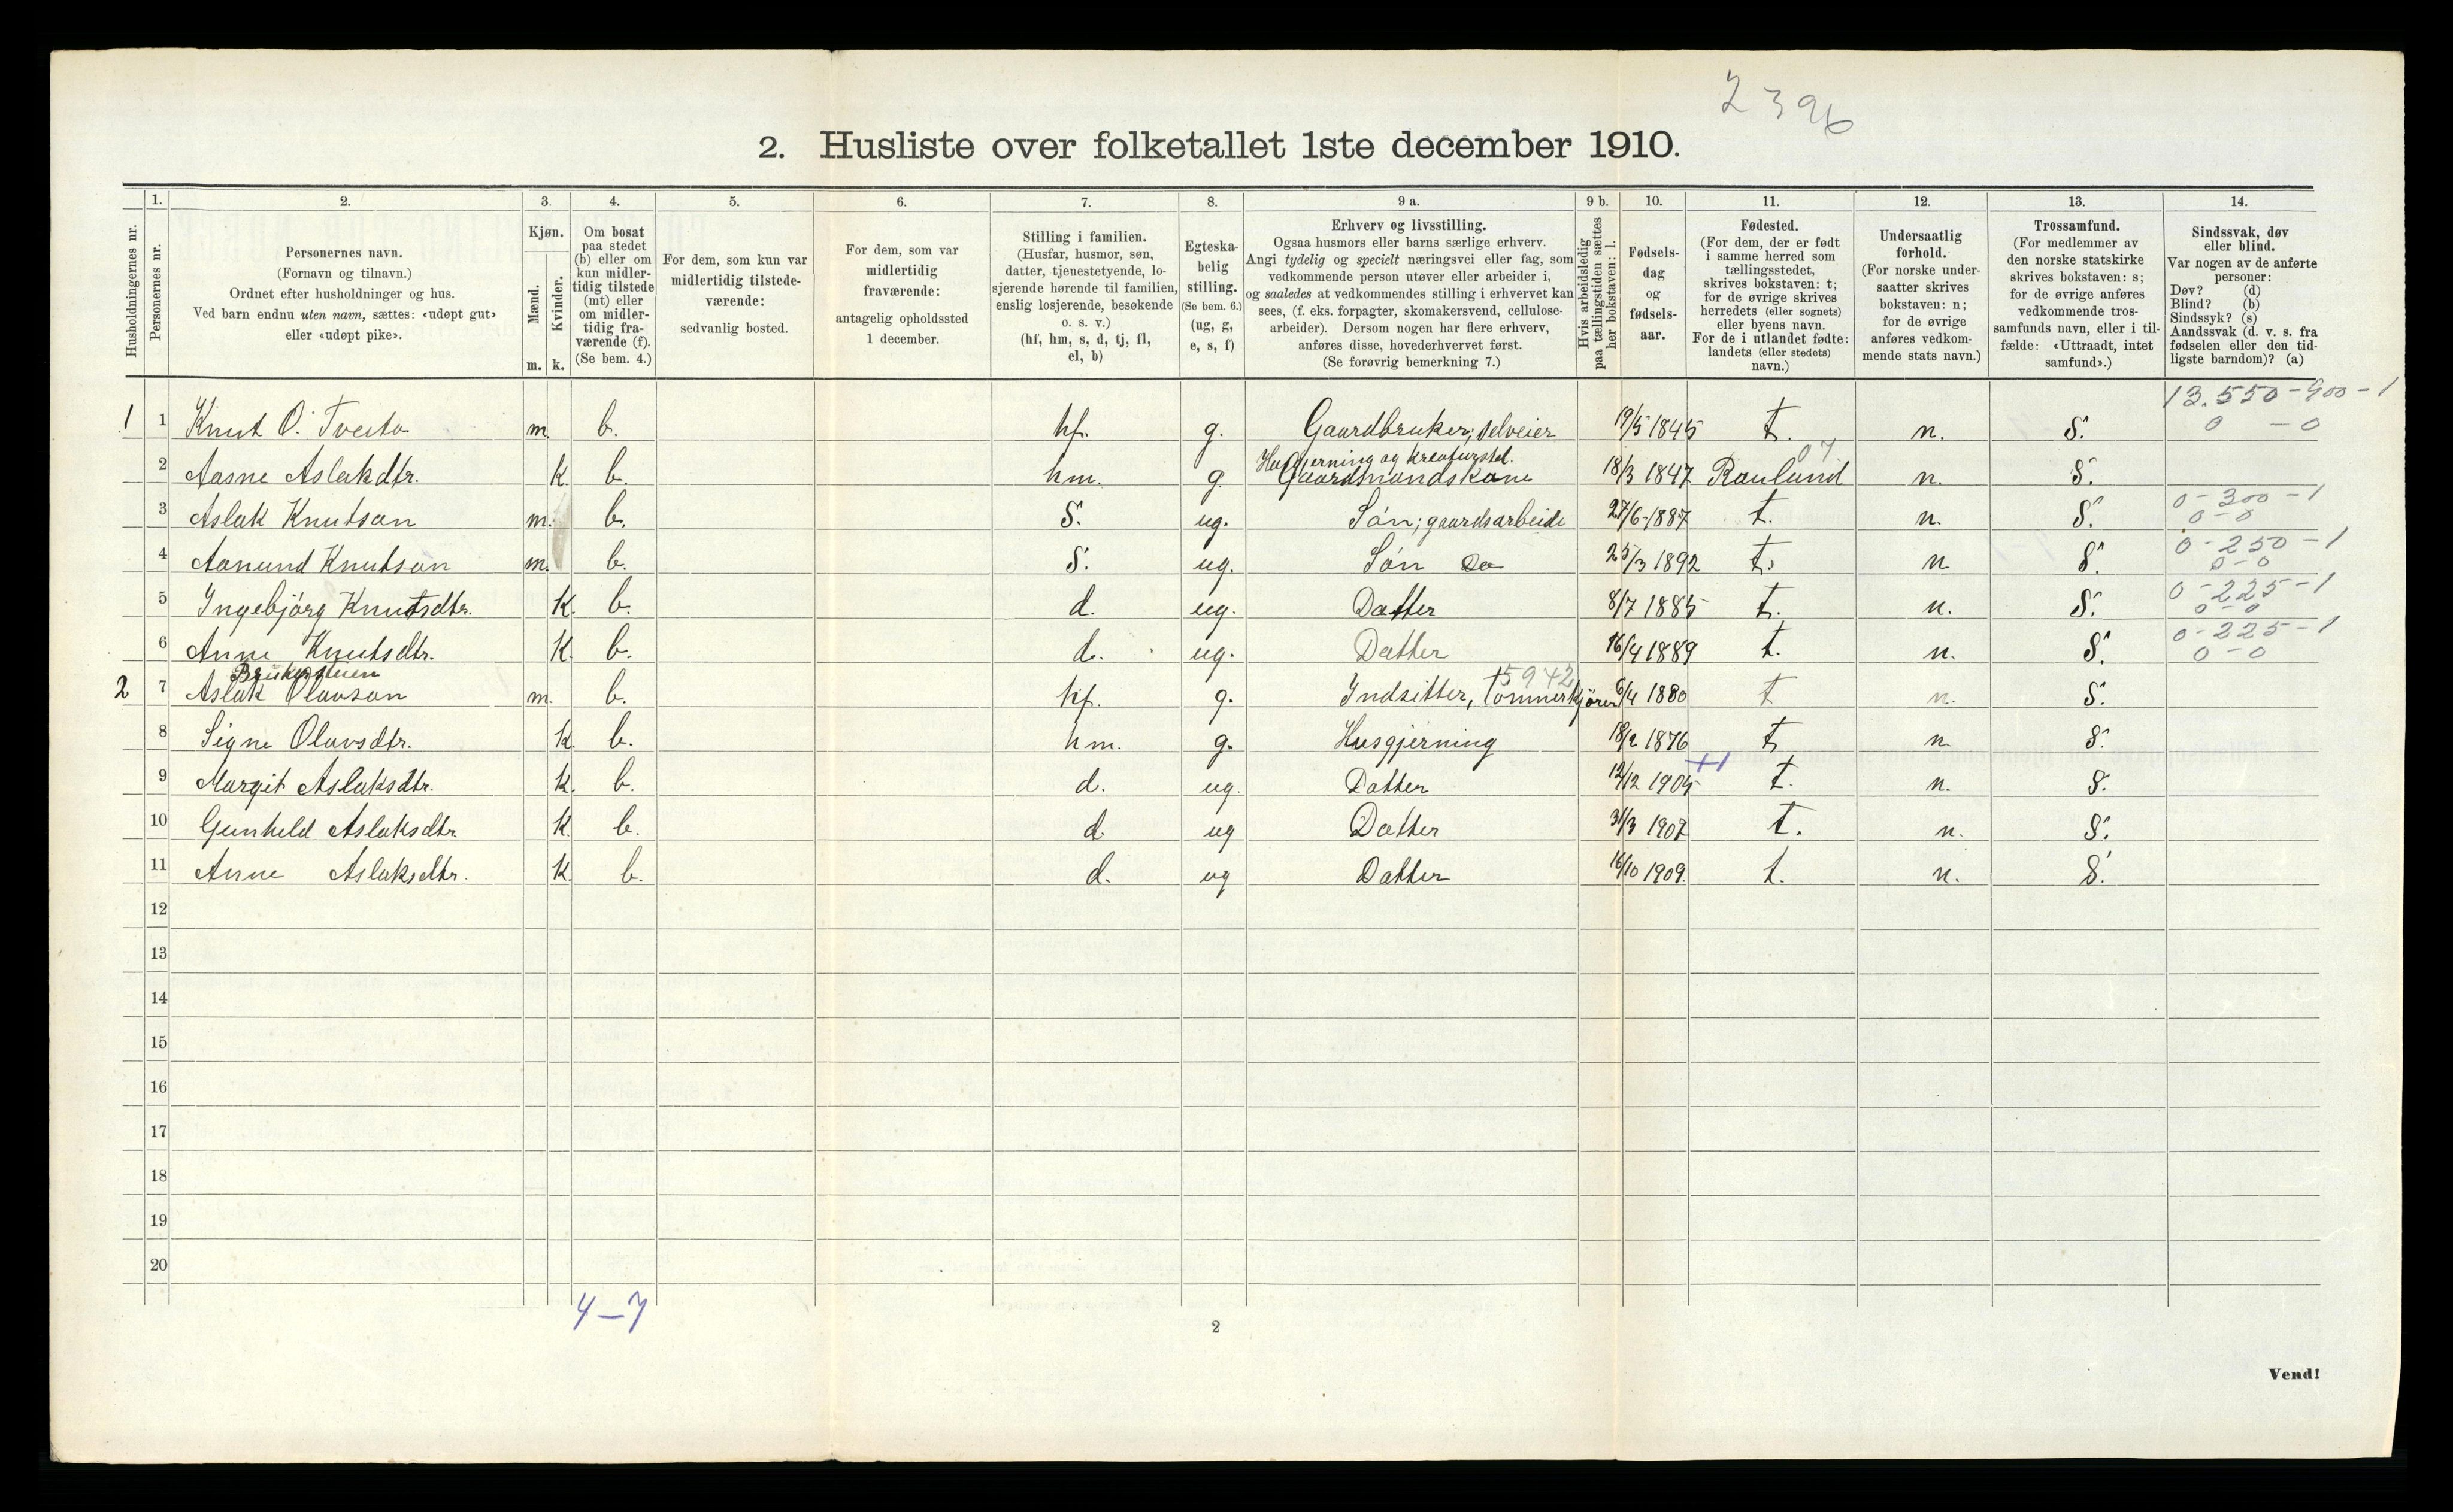 2396
2. Husliste over folketallet 1ste december 1910.
Husholdningernes nr.
1.
Personernes nr.
2.
Personernes navn.
(Fornavn og tilnavn.)
Ordnet efter husholdninger og hus.
Ved barn endnu uten navn, sættes: «udøpt gut»
eller «udøpt pike».
3.
Kjøn.
Mænd.
Kvinder.
m. k.
4.
Om bosat
paa stedet
(b) eller om
kun midler-
tidig tilstede
(mt) eller
om midler-
tidig fra-
værende (f).
(Se bem. 4.)
5.
For dem, som kun var
midlertidig tilstede-
værende:
sedvanlig bosted.
6.
For dem, som var
midlertidig
fraværende:
antagelig opholdssted
1 december.
7.
Stilling i familien.
(Husfar, husmor, søn,
datter, tjenestetyende, lo-
sjerende hørende til familien,
enslig losjerende, besøkende
o. s. v.)
(hf, hm, s, d, tj, fl,
el, b)
8.
Egteska-
belig
stilling.
(Se bem. 6.)
(ug, g,
e, s, f)
9 a.
Erhverv og livsstilling.
Ogsaa husmors eller barns særlige erhverv.
Angi tydelig og specielt næringsvei eller fag, som
vedkommende person utøver eller arbeider i,
og saaledes at vedkommendes stilling i erhvervet kan
sees, (f. eks. forpagter, skomakersvend, cellulose-
arbeider). Dersom nogen har flere erhverv,
anføres disse, hovederhvervet først.
(Se forøvrig bemerkning 7.)
9 b.
Hvis arbeidsledig
paa tællingstiden sættes
her bokstaven: l.
10.
Fødsels-
dag
og
fødsels-
aar.
11.
Fødested.
(For dem, der er født
i samme herred som
tællingsstedet,
skrives bokstaven: t;
for de øvrige skrives
herredets (eller sognets)
eller byens navn.
For de i utlandet fødte:
landets (eller stedets)
navn.)
12.
Undersaatlig
forhold.
(For norske under-
saatter skrives
bokstaven: n;
for de øvrige
anføres vedkom-
mende stats navn.)
13.
Trossamfund.
(For medlemmer av
den norske statskirke
skrives bokstaven: s;
for de øvrige anføres
vedkommende tros-
samfunds navn, eller i til-
fælde: «Uttraadt, intet
samfund».)
14.
Sindssvak, døv
eller blind.
Var nogen av de anførte
personer:
Døv? (d)
Blind? (b)
Sindssyk? (s)
Aandssvak (d. v. s. fra
fødselen eller den tid-
ligste barndom)? (a)
13.550-900-1
1 1 Knut O. Tveito m. b. hf. g. Gaardbruker; selveier 19/5 1845 t. n. S. 0 - 0
Husgjerning og kreaturstel. 07
2 Aasne Aslakdtr. k. b. hm. g. Gaardmandskone 18/3 1847 Rauland n. S.
0-300-1
3 Aslak Knutson m. b. S. ug. Søn; gaardsarbeide 27/6-1887 t. n. S. 0-0
0-250-1
4 Aanund Knutson m. b. S. ug. Søn Do 25/3 1892 t. n S. 0-0
0-225-1
5 Ingebjörg Knutsdtr. K. b. d. ug. Datter 8/7 1885 t. n. S. 0-0
0-225-1
6 Anne Knutsdtr. K. b. d. ug. Datter 16/4 1889 t. n. S. 0-0
5942
2 7 Aslak Olavson m. b. hf. g. Indsitter, tømmerkjører 6/4 1880 t n. S.
8 Signe Olavsdtr. k. b. hm. g. Husgjerning 18/2 1876 t n S.
+1
9 Margit Aslaksdtr. k. b. d. ug. Datter 12/12 1905 t. n. S.
10 Gunhild Aslaksdtr K. b. d ug Datter 31/3 1907 t. n. S.
11 Anne Aslaksdtr. K. b. d. ug Datter 16/10 1909. t. n. S.
12
13
14
15
16
17
18
19
20
4-7
2
Vend!